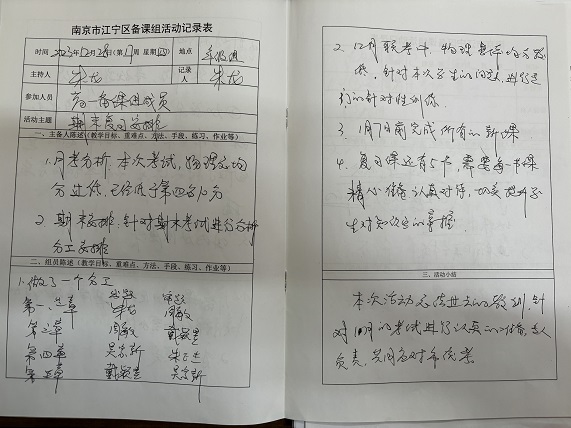 南京市江宁区备课组活动记录表
时间 2023年12月28日(第17周 星期四) 地点 年级组
主持人 朱龙 记录人 朱龙
参加人员 高一备课组成员
活动主题 期末复习安排
一、主备人陈述(教学目标、重难点、方法、手段、练习、作业等)
1.月考分析 本次考试,物理平均
分过低,已经低于第四名10分
2.期末安排,针对期末考试进行分析
分工安排
二、组员陈述(教学目标、重难点、方法、手段、练习、作业等)
1.做了一个分工
第一、二章 朱龙 周敏
第三章 周敏 戴
第四章 吴 朱
第五章 戴 吴
2.12月联考中,物理其平均分较
低,针对本次学生的问题,进行
的针对性训练.
3.1月7日前完成所有的新课
4.复习课还有5节,需要每一节课
精心准备,认真对待,切实提升学
生对知识点的掌握.
三、活动小结
本次活动总结过去的教训,针
对1月的考试进行认真的准备,
负责,共同应对统考